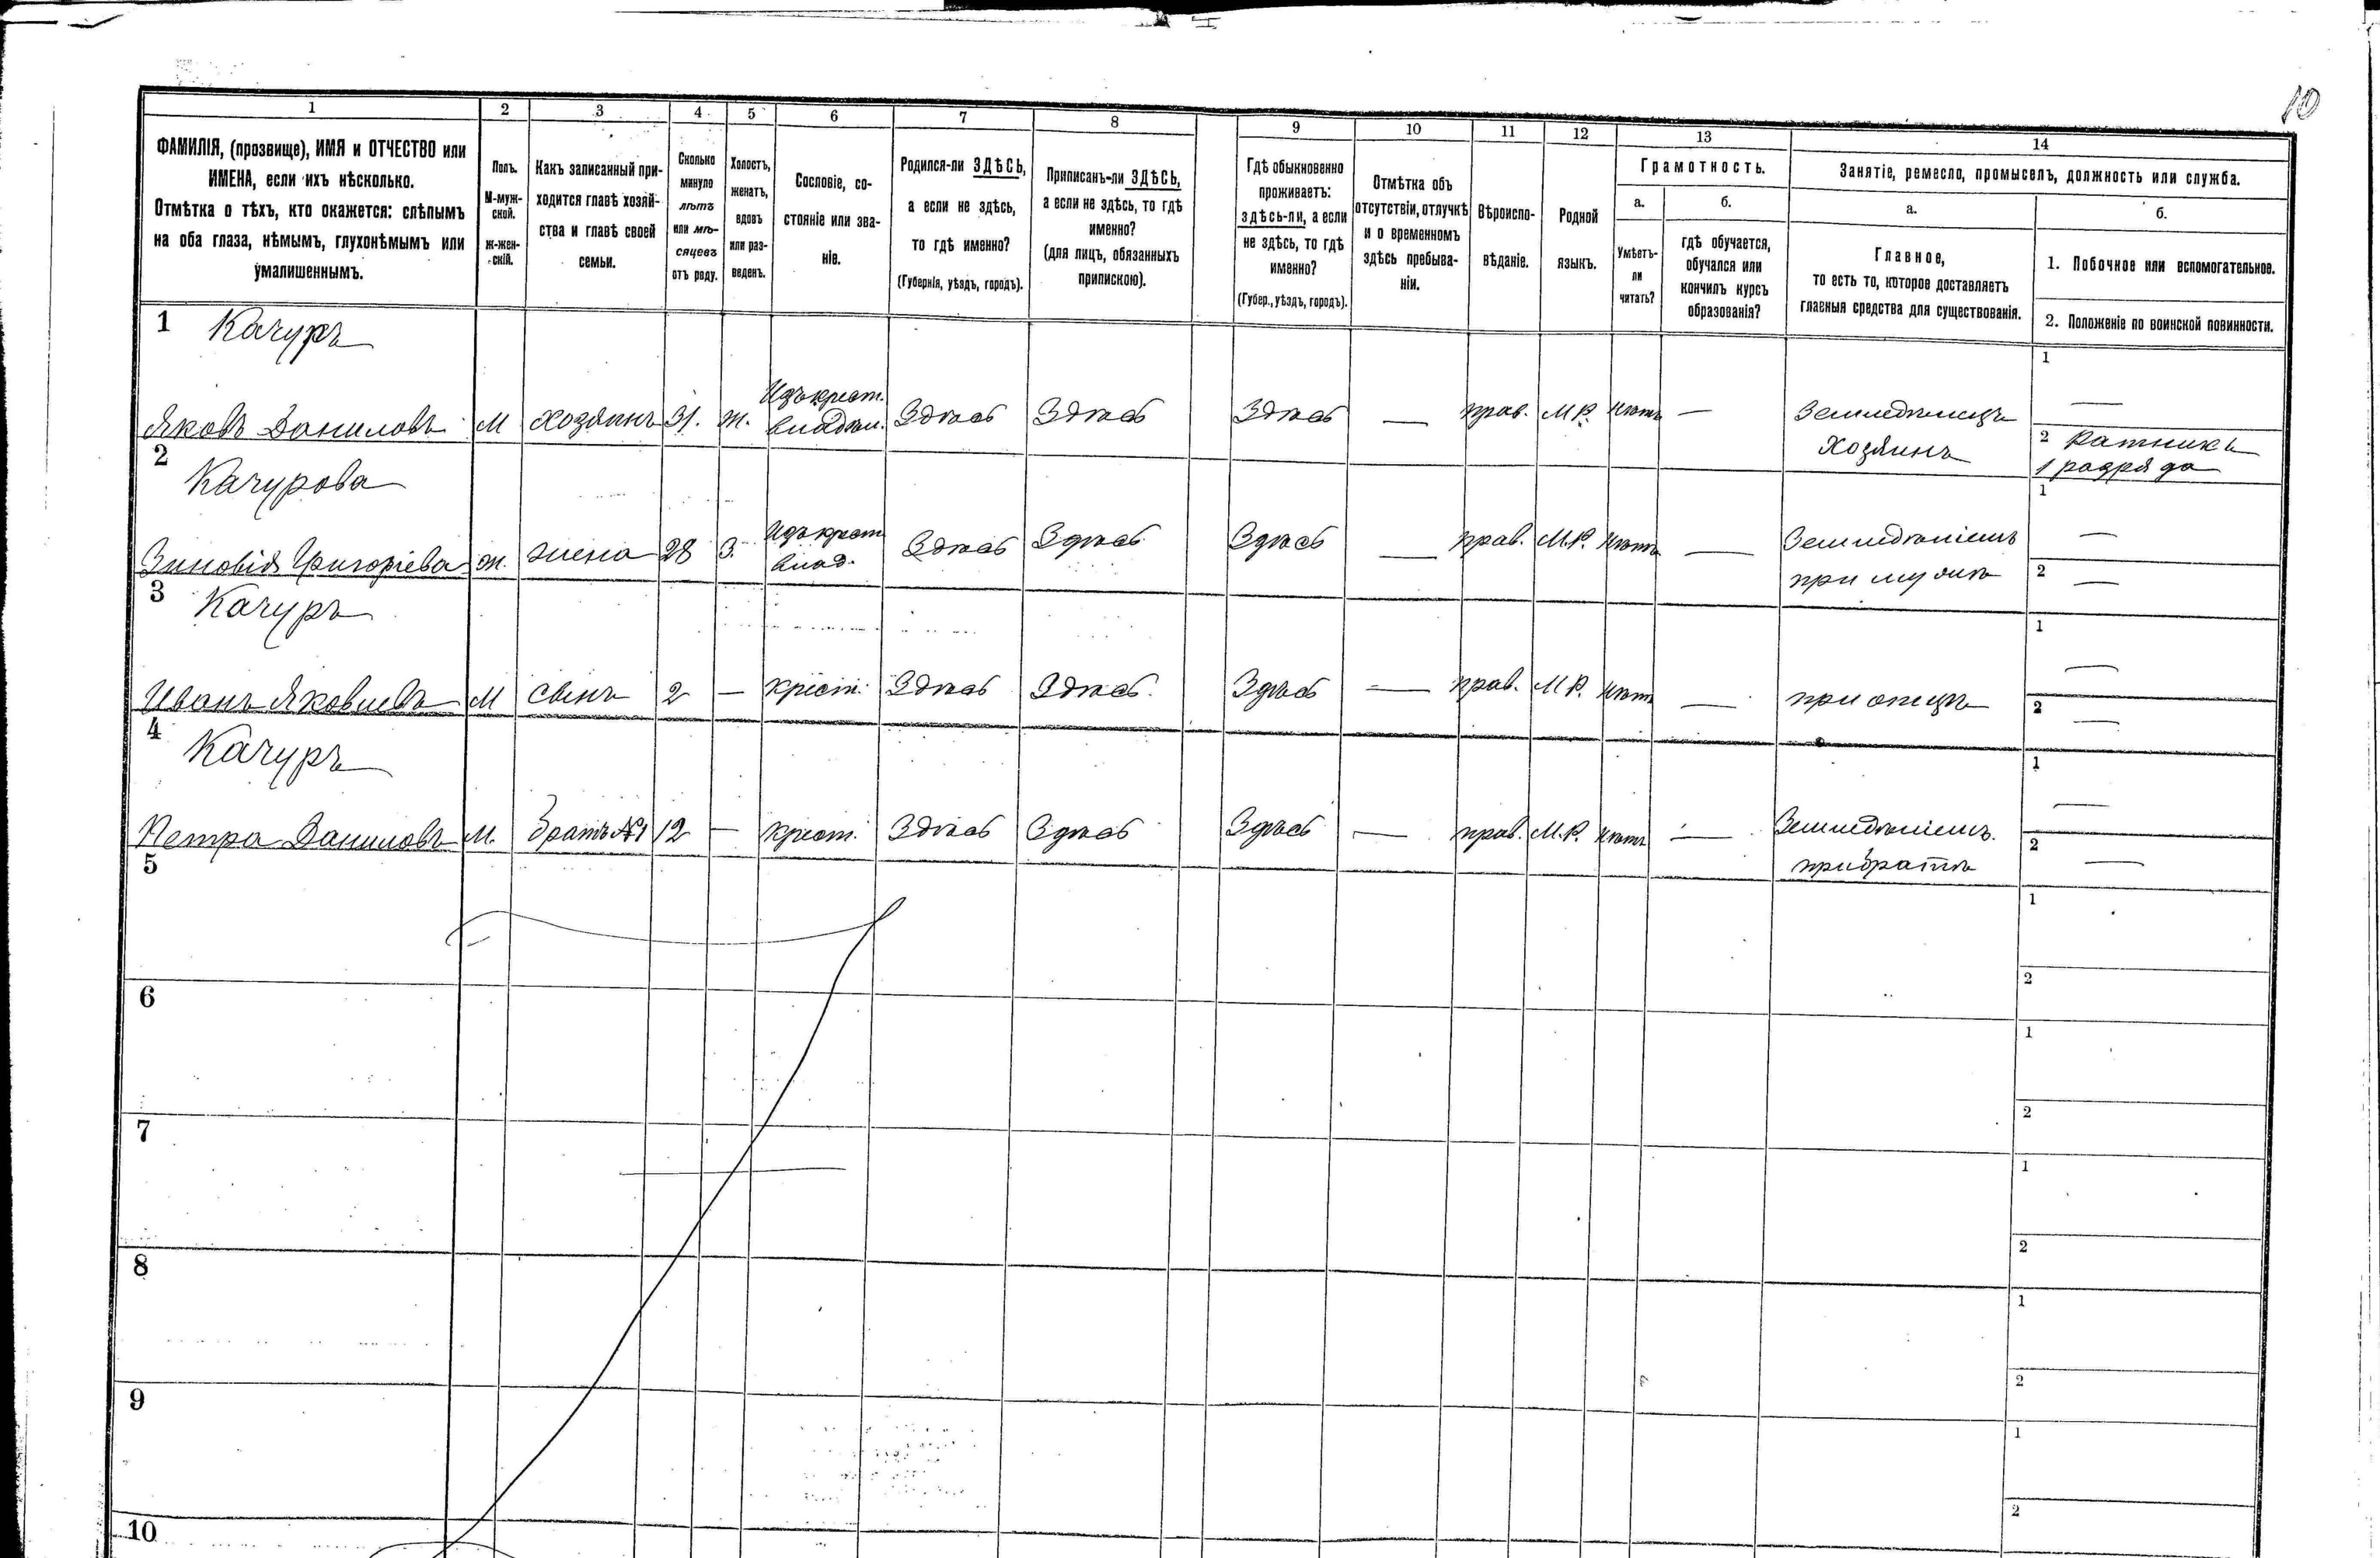 10
1 2 3 4 5 6 7 8 9 10 11 12 13 14
ФАМИЛІЯ, (прозвище), ИМЯ и ОТЧЕСТВО или
ИМЕНА, если ихъ нѣсколько.
Отмѣтка о тѣхъ, кто окажется: слѣпымъ
на оба глаза, нѣмымъ, глухонѣмымъ или
умалишеннымъ.
Полъ.
М-муж-
ской.
ж-жен-
скій.
Какъ записанный при-
ходится главѣ хозяй-
ства и главѣ своей
семьи.
Сколько
минуло
лѣтъ
или мѣ-
сяцевъ
отъ роду.
Холостъ,
женатъ,
вдовъ
или раз-
веденъ.
Сословіе, со-
стояніе или зва-
ніе.
Родился-ли ЗДѢСЬ,
а если не здѣсь,
то гдѣ именно?
(Губернія, уѣздъ, городъ).
Приписанъ-ли ЗДѢСЬ,
а если не здѣсь, то гдѣ
именно?
(для лицъ, обязанныхъ
припискою).
Гдѣ обыкновенно
проживаетъ:
здѣсь-ли, а если
не здѣсь, то гдѣ
именно?
(Губер., уѣздъ, городъ).
Отмѣтка объ
отсутствіи, отлучкѣ
и о временномъ
здѣсь пребыва-
ніи.
Вѣроиспо-
вѣданіе.
Родной
языкъ.
Грамотность.
а.
Умѣетъ-
ли
читать?
б.
гдѣ обучается,
обучался или
кончилъ курсъ
образованія?
Занятіе, ремесло, промыселъ, должность или служба.
а.
Главное,
то есть то, которое доставляетъ
главныя средства для существованія.
б.
1. Побочное или вспомогательное.
2. Положеніе по воинской повинности.
1 Качуръ
Яковъ Даниловъ М хозяинъ 31. ж. Изъ крест. владѣл. Здѣсь Здѣсь Здѣсь — прав. М.Р. нѣтъ — Земледѣлецъ 1 —
Хозяинъ 2 Ратникъ
1 разряда
2 Качурова
Зиновія Григоріева ж. жена 28 З. Изъ крест. влад. Здѣсь Здѣсь Здѣсь — прав. М.Р. нѣтъ — Земледѣліемъ 1 —
при мужѣ 2 —
3 Качуръ
Иванъ Яковлевъ М сынъ 2 — крест. Здѣсь Здѣсь Здѣсь — прав. М.Р. нѣтъ — при отцѣ 1 —
2 —
4 Качуръ
Петра Даниловъ М. братъ №1 12 — крест. Здѣсь Здѣсь Здѣсь — прав. М.Р. нѣтъ — Земледѣліемъ. 1 —
при братѣ 2 —
5 1
2
6 1
2
7 1
2
8 1
2
9 1
2
10